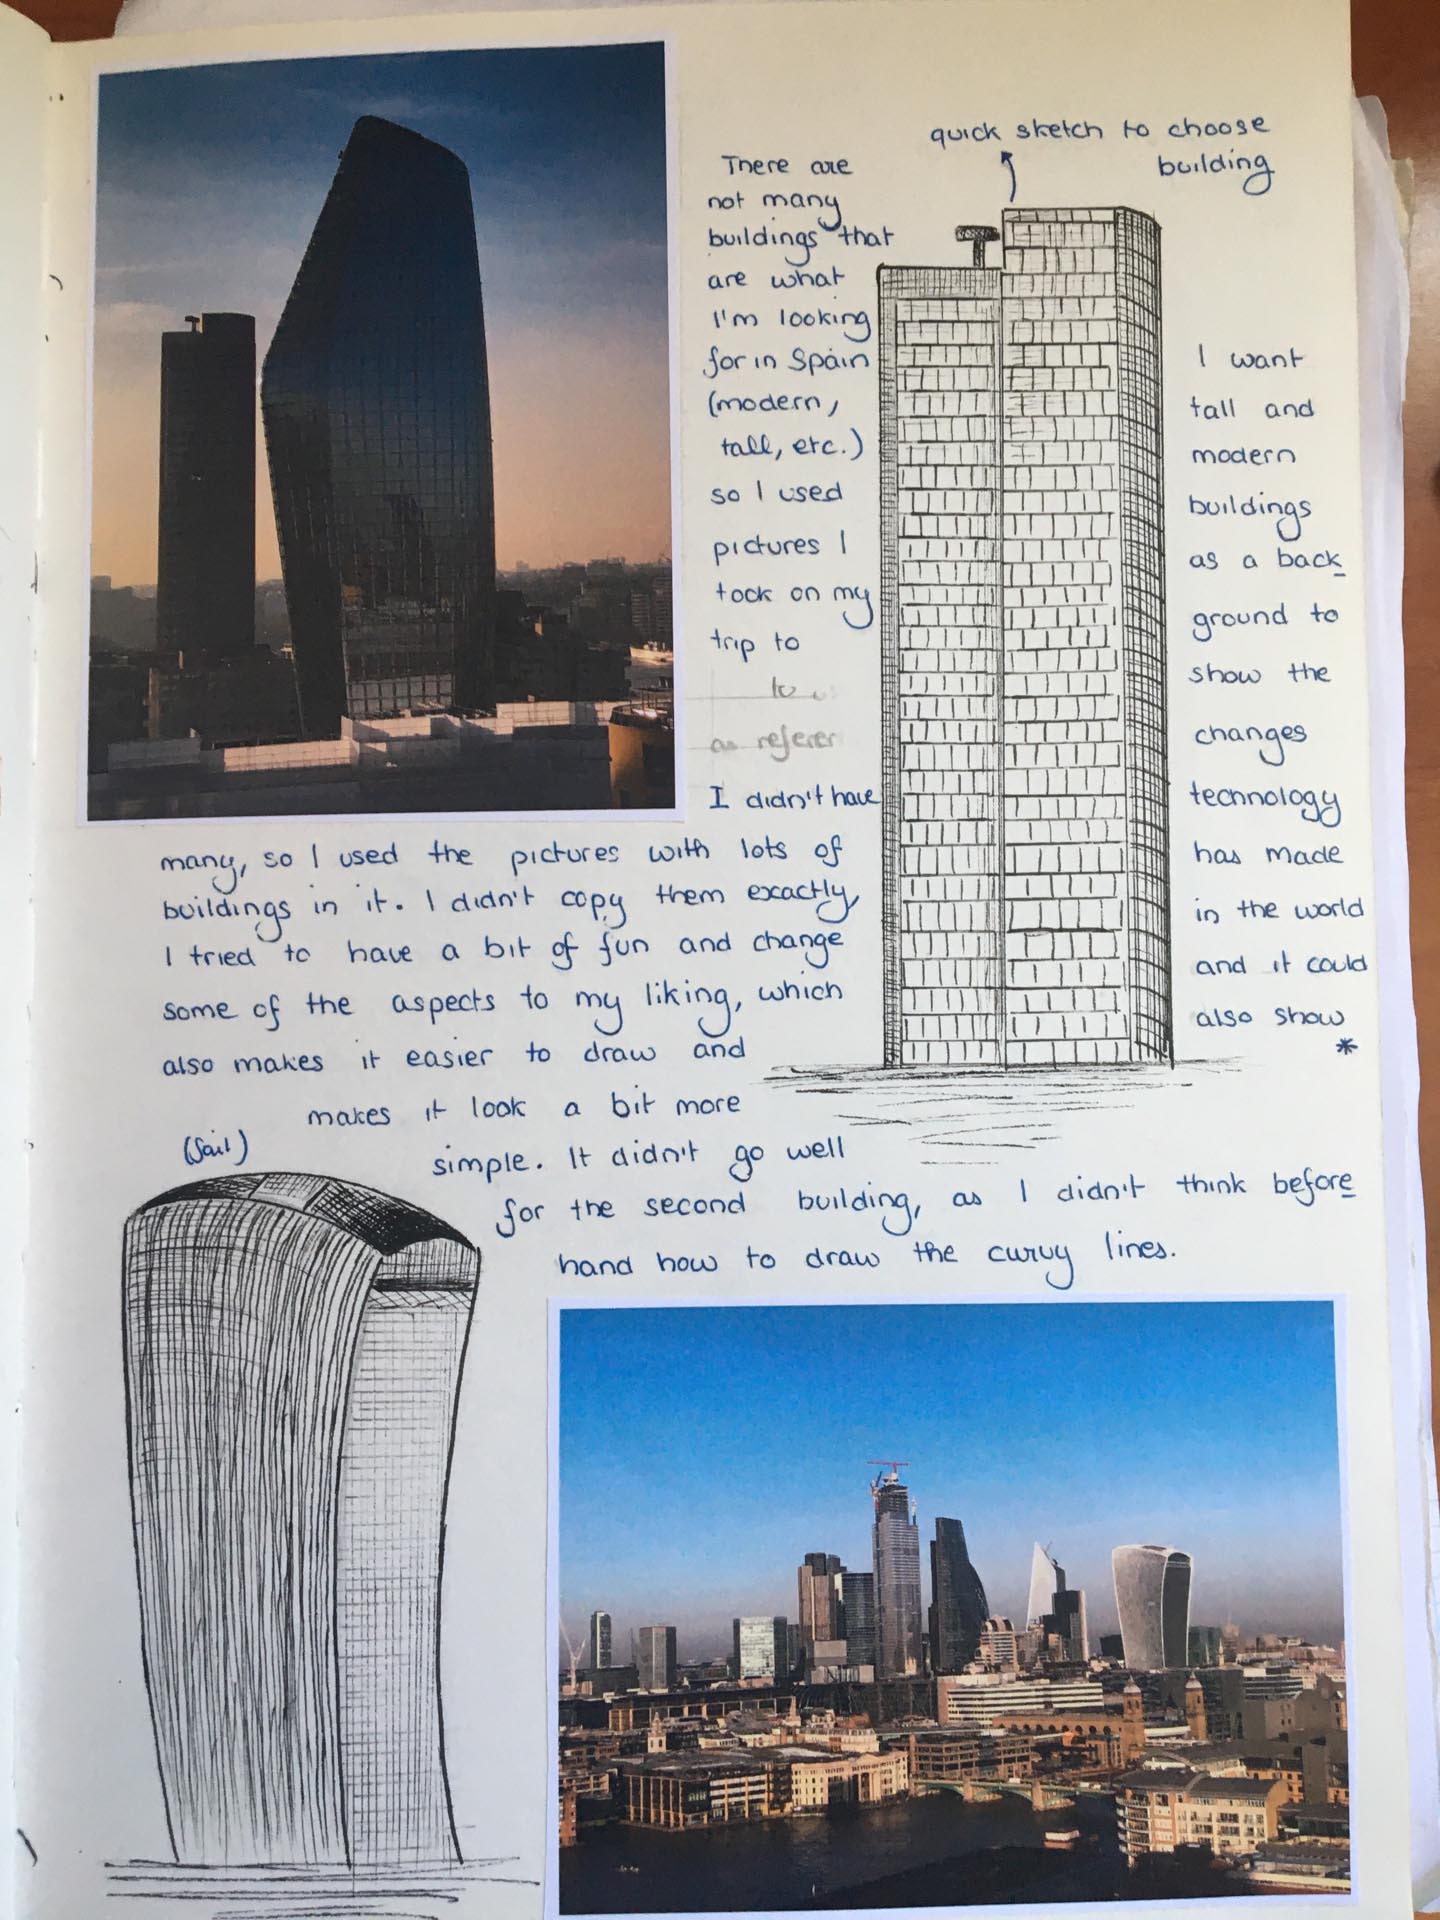 quick sketch to choose
building
There are
not many
buildings that
are what
I'm looking
for in Spain
(modern,
tall, etc.)
so I used
pictures I
took on my
trip to
to
as referen
I didn't have
many, so I used the pictures with lots of
buildings in it. I didn't copy them exactly,
I tried to have a bit of fun and change
some of the aspects to my liking, which
also makes it easier to draw and
makes it look a bit more
simple. It didn't go well
for the second building, as I didn't think before
hand how to draw the curvy lines.
I want
tall and
modern
buildings
as a back
ground to
show the
changes
technology
has made
in the world
and it could
also show
*